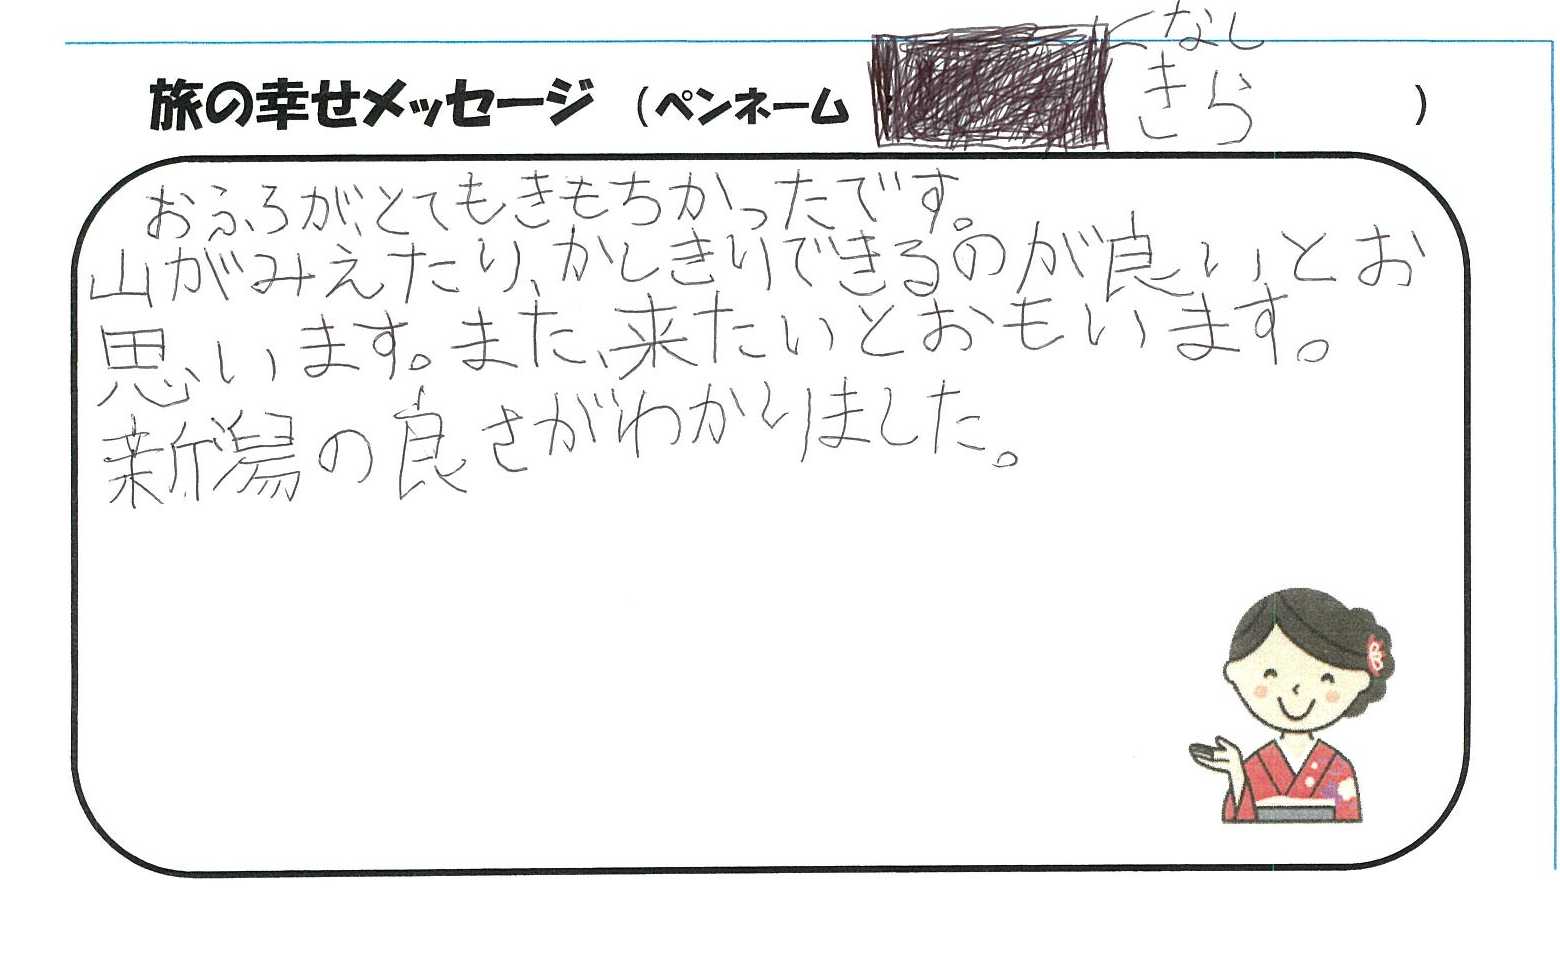 なし
旅の幸せメッセージ (ペンネーム きら )
おふろが、とてもきもちかったです。
山がみえたり、かしきりできるのが良いとお
思います。また、来たいとおもいます。
新潟の良さがわかりました。